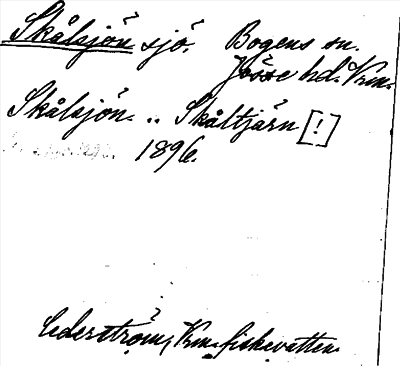 Skålsjön sjö. Bogens sn.
Jösse hd. Vrm.
Skålsjön. .. Skåltjärn [!]
1896.
Cederström, Vrm. fiskevatten.